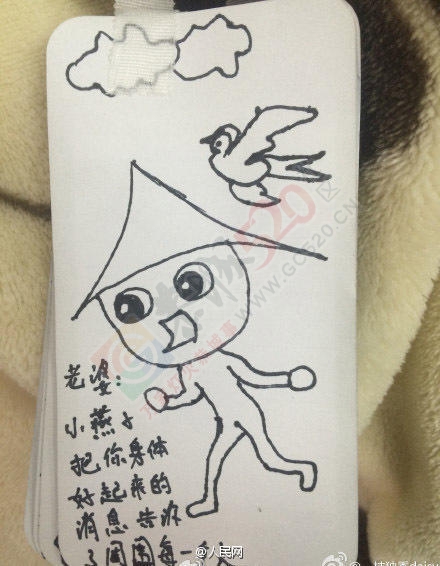 老婆：
小燕子
把你身体
好起来的
消息告诉
了周围每一个
520区
WWW.GC520.CN
@人民网